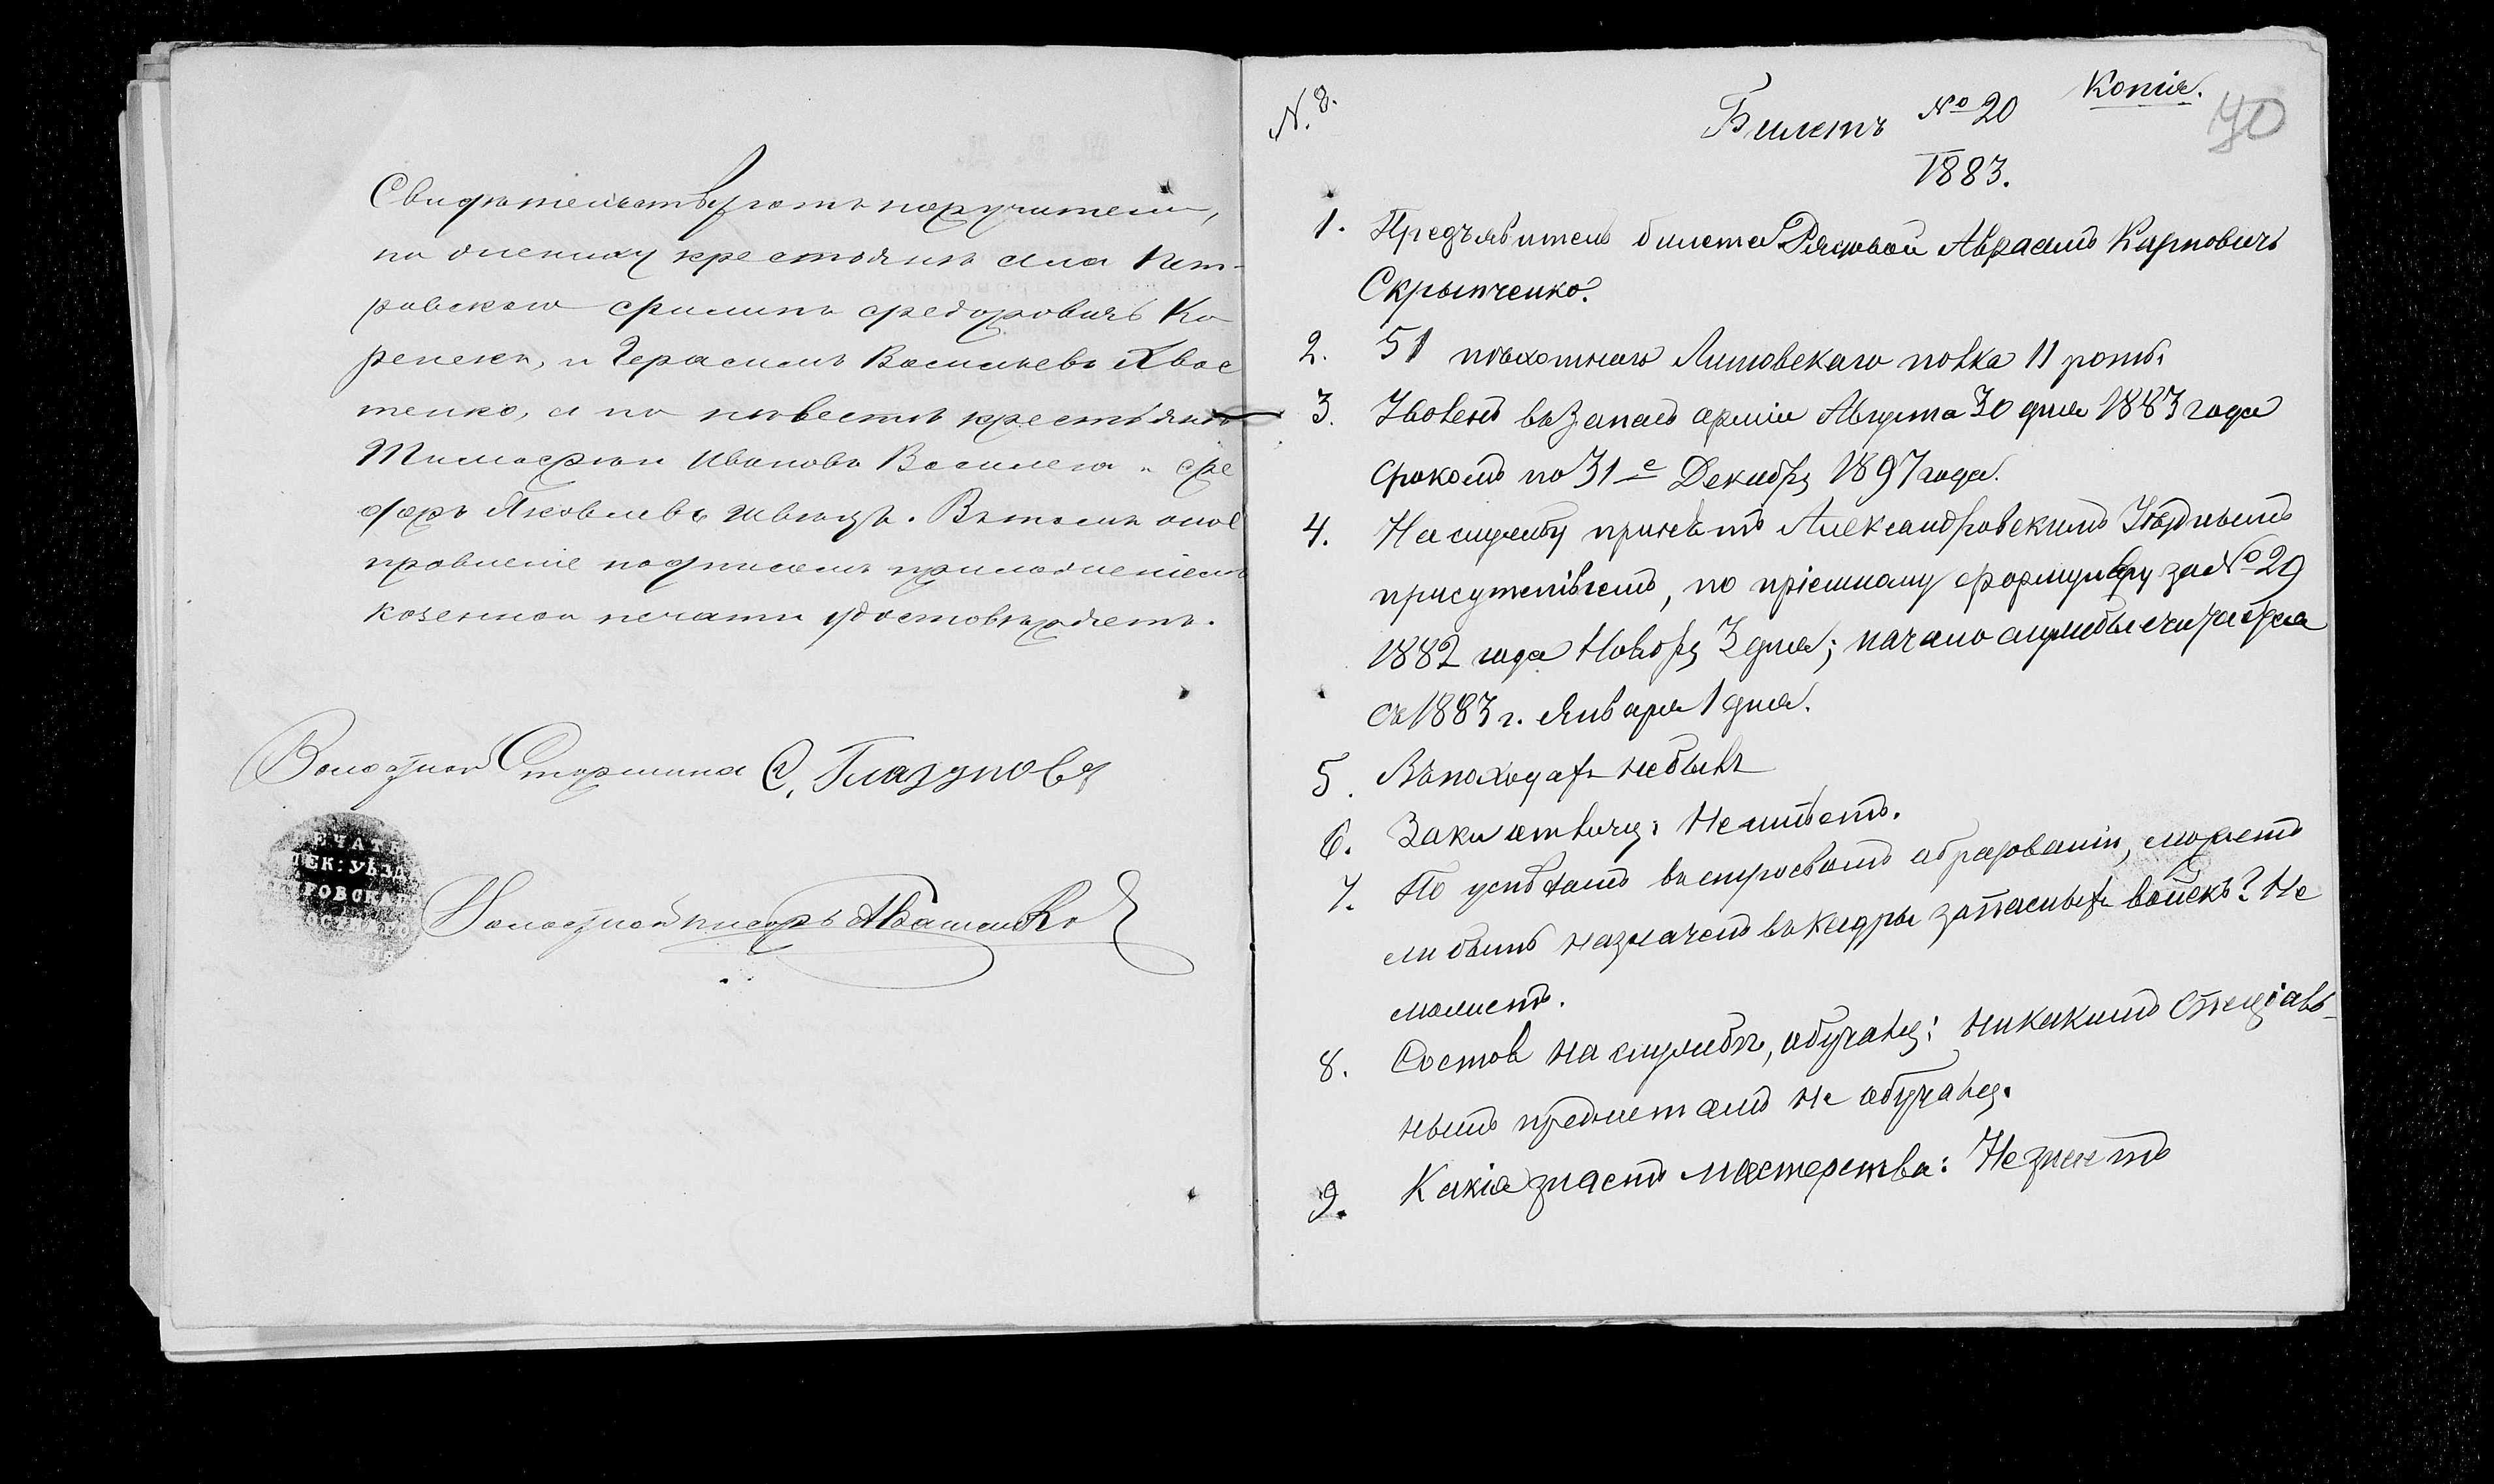 Свидѣтельствуютъ поручители,
по жениху крестьяне села Пет-
ровскаго Филипъ Федоровичъ Ко
репекъ, и Герасимъ Васильевъ Хвос
тенко, а по невестѣ крестьяне
Тимофей Ивановъ Василега и Фе
доръ Яковлевъ Швецъ. Въ томъ Волос
правленіе подписомъ приложеніемъ
казенной печати удостовѣряетъ.
Волостной Старшина С. Глазуновъ
ПЕЧАТЬ
ЛЕК: УѢЗД
РОВСКАГО
Волостной писарь
N. 8.
Копія.
Билетъ № 20
70
1883.
1. Предъявитель билета Рядовой Авраамъ Карповичъ
Скрыпченко.
2. 51 пѣхотнаго Литовскаго полка 11 роты
3. Уволенъ въ запасъ арміи Августа 30 дня 1883 года
срокомъ по 31 е Декабря 1897 года.
4. На службу принятъ Александровскимъ Уѣзднымъ
присутствіемъ, по пріемному формуляру за № 29
1882 года Ноября 3 дня; начало службы считается
съ 1883 г. Января 1 дня.
5. Въ походахъ небылъ
6. Знаки отличія: Не имѣетъ.
7. По успѣхамъ въ строевомъ образованіи, можетъ
ли быть назначенъ въ кадры запасныхъ войскъ? Не
можетъ.
8. Состоя на службѣ, обучался: никакимъ спеціаль-
нымъ предметамъ не обучался.
9. Какія знаетъ мастерства: Не знаетъ